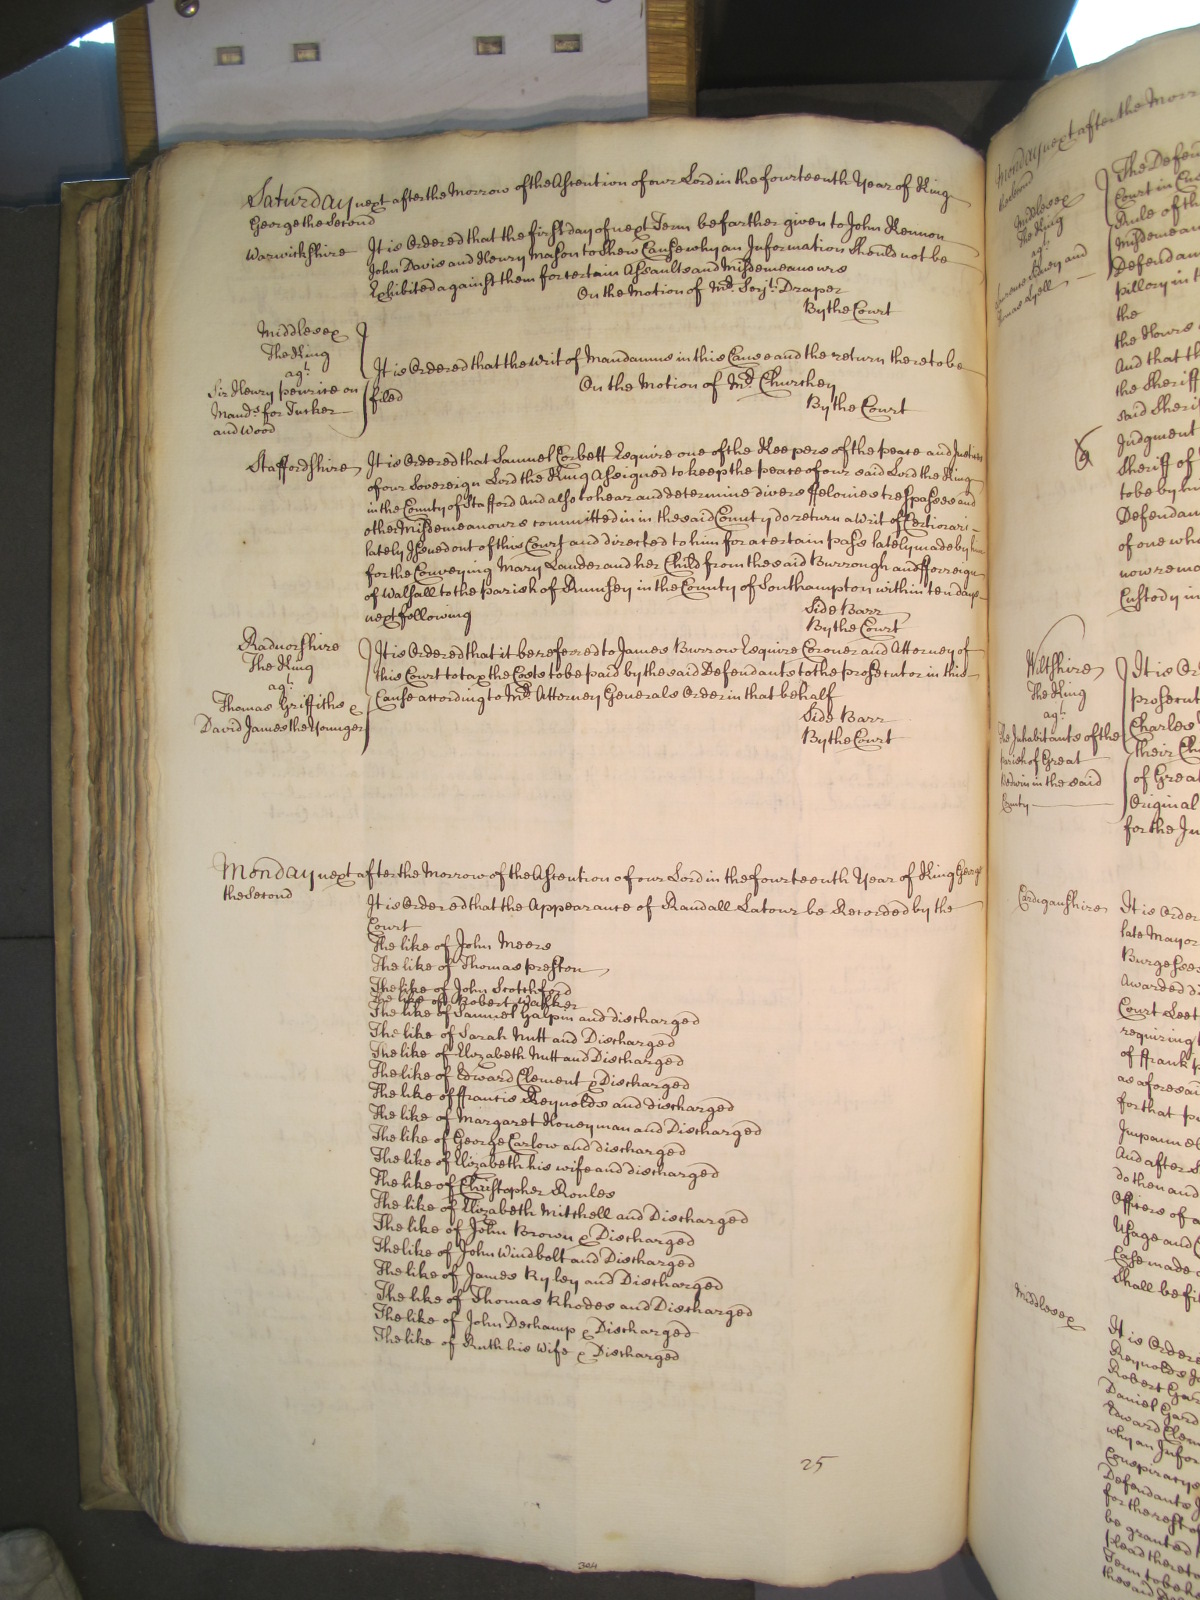 Saturday next after the Morrow of the Ascention of our Lord in the fourteenth Year of King
George the Second
Warwickshire It is Ordered that the first day of next Term be farther given to John Kennon
John Davis and Henry Mason to Shew Cause why an Information Should not be
Exhibited against them for certain Assaults and Misdemeanours
On the Motion of Mr. Serjt. Draper
By the Court
Middlesex
The King
agt.
Sir Henry penrice on
Mands. for Tucker
and Wood
It is Ordered that the Writ of Mandamus in this Cause and the return thereto be
filed
On the Motion of Mr. Churchey
By the Court
Staffordshire It is Ordered that Samuel Corbett Esquire one of the Keepers of the peace and Justices
of our Sovereign Lord the King Assigned to keep the peace of our said Lord the King
in the County of Stafford And also to hear and determine divers ffelonies trespasses and
other Misdemeanours committed in in the said County do return a Writ of Certiorari
lately Issued out of this Court and directed to him for a certain pass lately made by him
for the Conveying Mary Lander and her Child from the said Burrough and fforreign
of Walsall to the parish of Rumsey in the County of Southampton within ten days
next following
Side Barr
By the Court
Radnorshire
The King
agt.
Thomas Griffiths &
David James the Younger
It is Ordered that it be referred to James Burrow Esquire Coroner and Attorney of
this Court to tax the Costs to be paid by the said Defendants to the prosecutor in this
Cause according to Mr. Attorney Generals Order in that behalf
Side Barr
By the Court
Monday next after the Morrow of the Ascention of our Lord in the fourteenth Year of King George
the Second
It is Ordered that the Appearance of Randall Latour be Recorded by the
Court
The like of John Meers
The like of Thomas preston
The like of John Scotchford
The like of Robert Walker
The like of Samuel Galpin and discharged
The like of Sarah Nutt and Discharged
The like of Elizabeth Nutt and Discharged
The like of Edward Clement & Discharged
The like of ffrancis Reynolds and discharged
The like of Margaret Honeyman and Discharged
The like of George Carlow and discharged
The like of Elizabeth his wife and discharged
The like of Christopher Roules
The like of Elizabeth Mitchell and Discharged
The like of John Brown & Discharged
The like of John Windbolt and Discharged
The like of James Ryley and Discharged
The like of Thomas Rhodes and Discharged
The like of John Deschamp & Discharged
The like of Ruth his Wife & Discharged
25
304
Monday next after the Morr
Middlesex
The King
agt.
and
The Defen
Court in
Rule of th
Misdemean
Defendan
pillory in t
the
the Hours
And that th
the Sheriff
said Sheri
Judgment
Sheriff of
to be by
Defendan
of one who
now remo
Custody in
Wiltshire
The King
agt.
The Inhabitants of the
parish of Great
Bedwin in the said
County
It is Or
prosecut
Charles
their Ch
of Grea
Original
for the Ju
Cardiganshire It is Order
late Mayor
Burgesses
Awarded
Court Leet
requiring
of ffrank p
as aforesai
for that p
Impannel
And after
do then and
Officers of a
Usage and
Case made
Shall be fi
Middlesex
It is Ordere
Reynolds
Robert Gar
Daniel Gard
Edward Clem
why an Infor
Conspiracy
Defendants
for the rest of
be granted
plead thereto
Term to be
the said